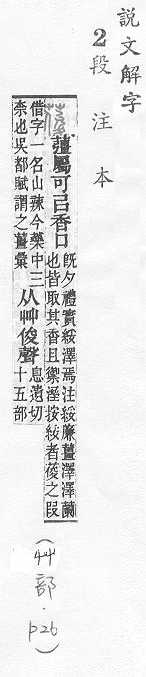 說文解字
2段 注 本
葰 薑屬可㠯香口
旣夕禮實綏澤焉注綏廉薑澤澤蘭
也皆取其香且禦溼按綏者葰之叚
借字一名山辣今藥中三
柰也吳都賦謂之薑彙
从艸俊聲
息遺切
十五部
(艸部·p26)